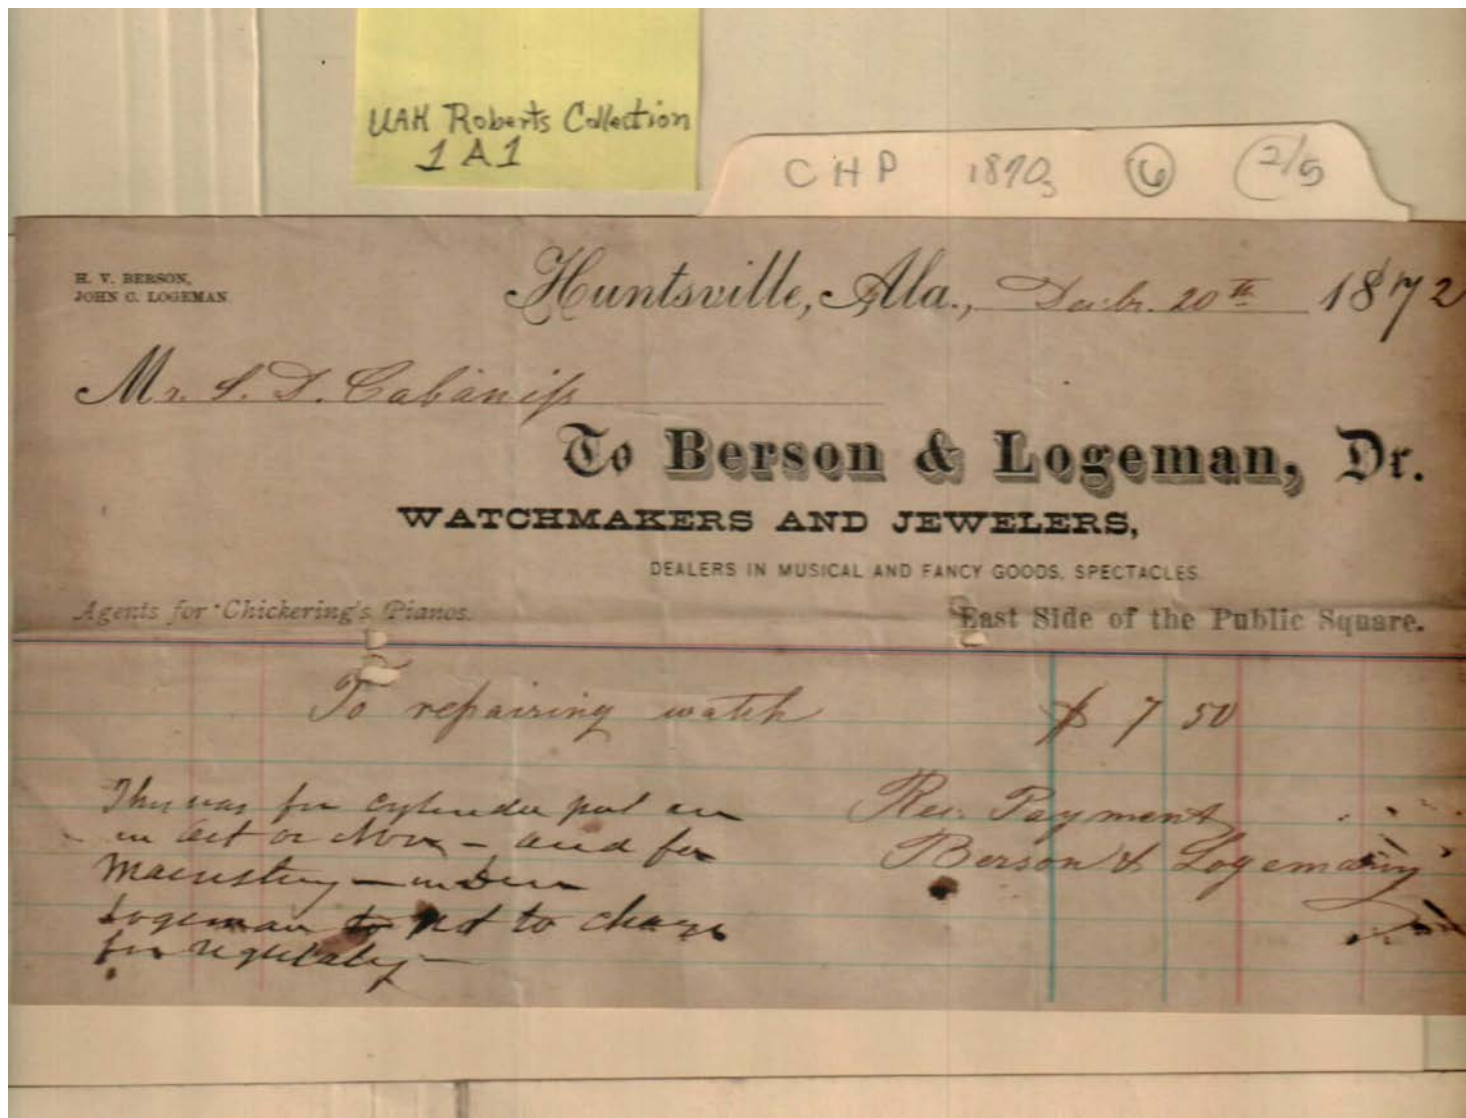 UAH Roberts Collection
1 A 1
CHP 1870s 6 2/5
H. V. BERSON,
JOHN C. LOGEMAN
Huntsville, Ala., Decbr. 20th 1872
Mr. S. D. Cabaniss
To Berson & Logeman, Dr.
WATCHMAKERS AND JEWELERS,
DEALERS IN MUSICAL AND FANCY GOODS, SPECTACLES
Agents for Chickering's Pianos.
East Side of the Public Square.
To repairing watch $ 7 50
Rec. Payment
Berson & Logeman
This was for cylinder put in
in Oct or Nov - and for
Mainspring
Logeman not to charge
for regulating